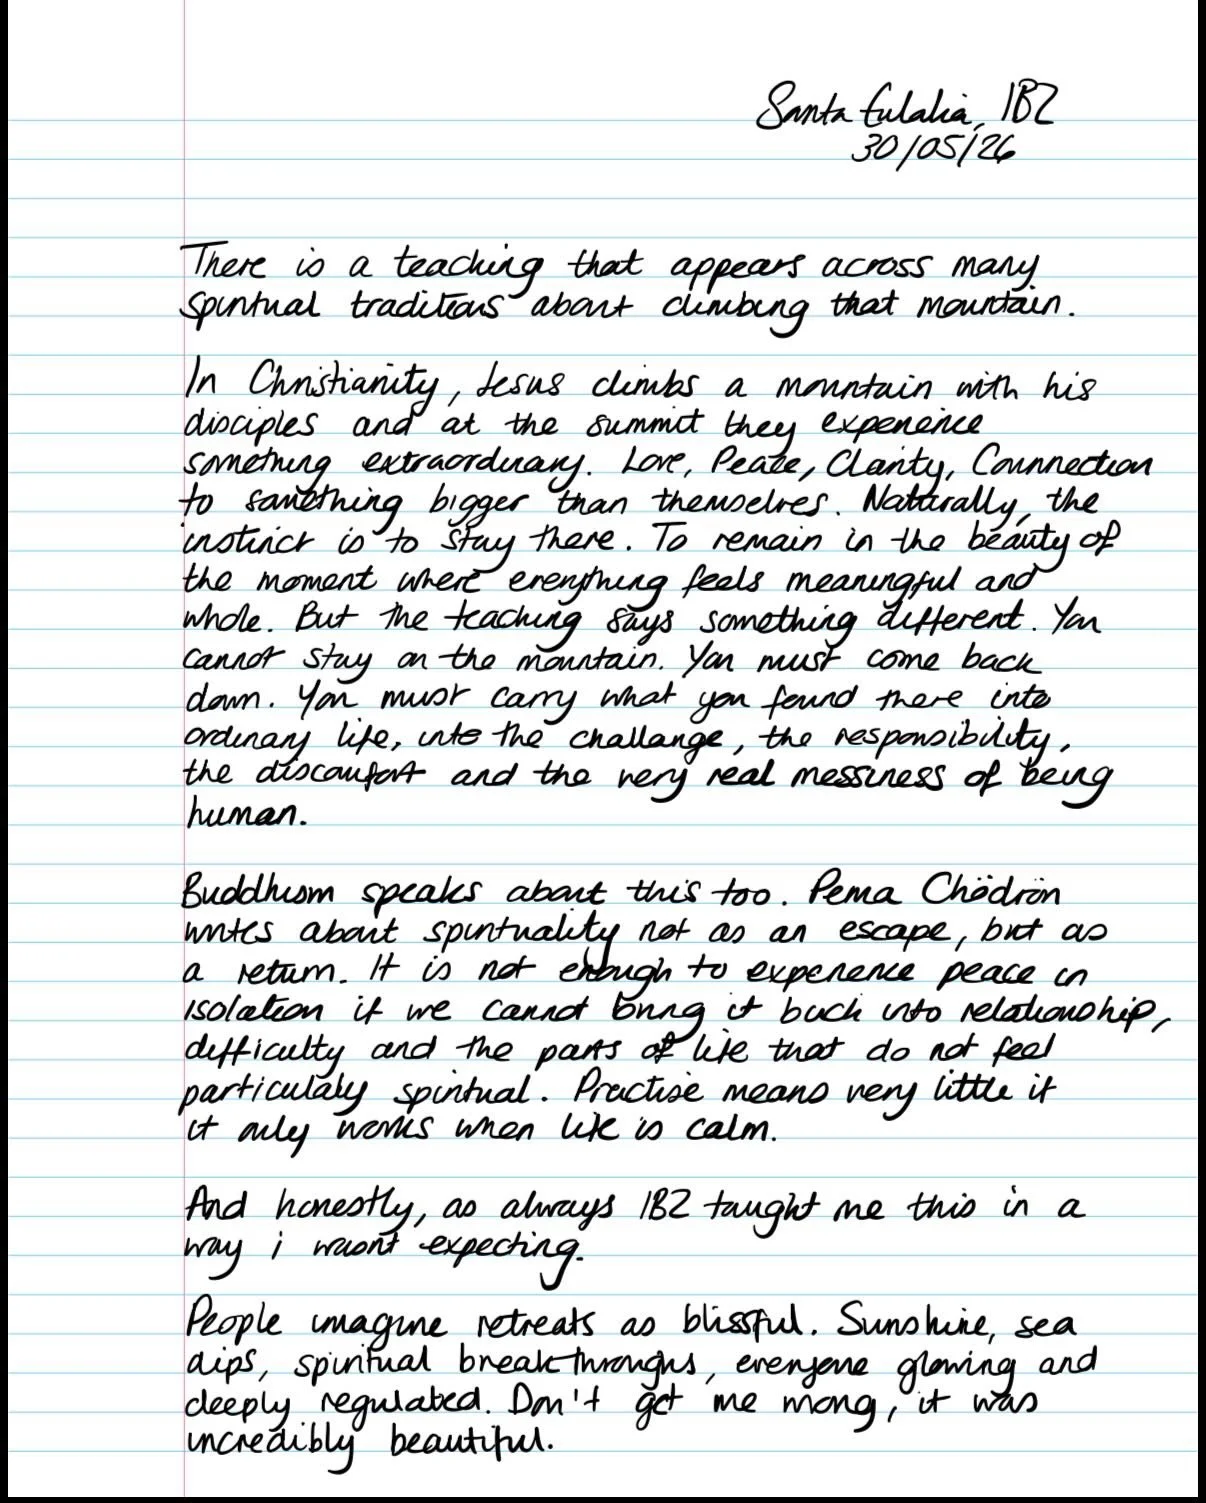 Santa Eulalia, IBZ
30/05/26
There is a teaching that appears across many
spiritual traditions about climbing that mountain.
In Christianity, Jesus climbs a mountain with his
disciples and at the summit they experience
something extraordinary. Love, Peace, Clarity, Counnection
to something bigger than themselves. Naturally, the
instinct is to stay there. To remain in the beauty of
the moment where everything feels meaningful and
whole. But the teaching says something different. You
cannot stay on the mountain. You must come back
down. You must carry what you found there into
ordinary life, into the challange, the responsibility,
the discomfort and the very real messiness of being
human.
Buddhism speaks about this too. Pema Chödrön
writes about spirituality not as an escape, but as
a return. It is not enough to experience peace in
isolation if we cannot bring it back into relationship,
difficulty and the parts of life that do not feel
particulaly spiritual. Practise means very little if
it only works when life is calm.
And honestly, as always IBZ taught me this in a
way i wasnt expecting.
People imagine retreats as blissful. Sunshine, sea
dips, spiritual breakthroughs, everyone glowing and
deeply regulated. Don't get me wrong, it was
incredibly beautiful.